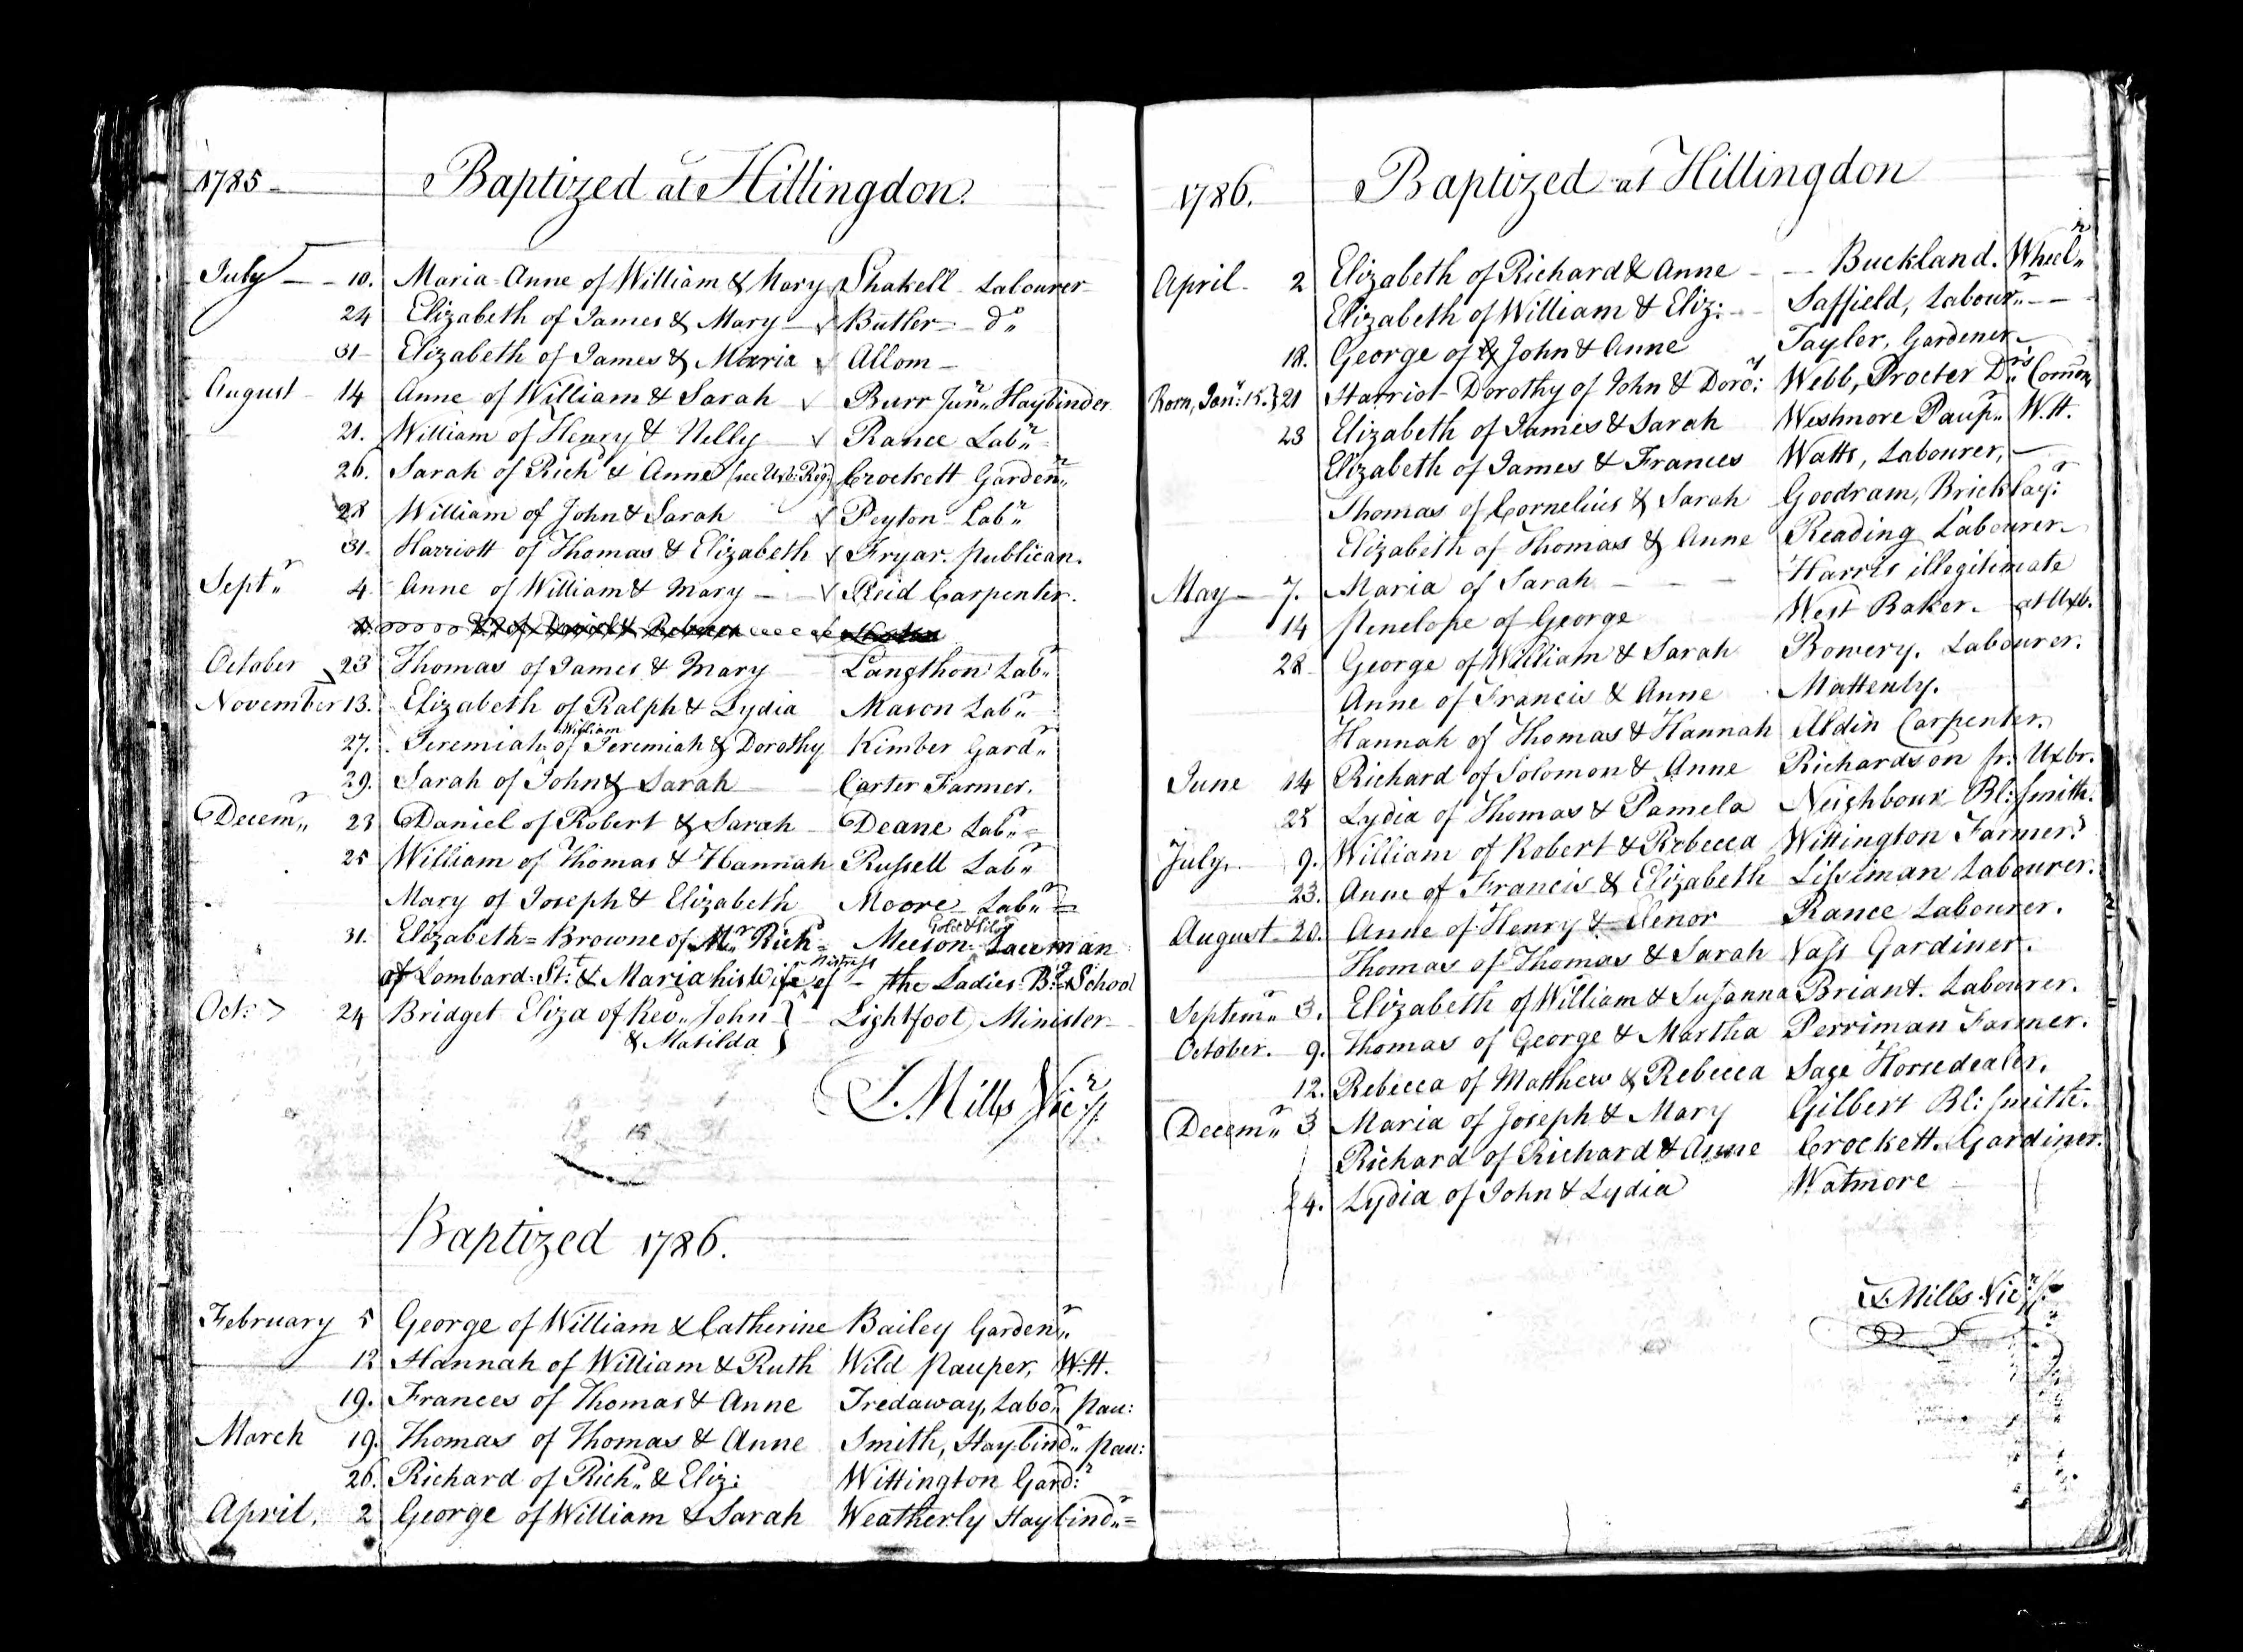 1785
Baptized at Hillingdon.
July 10. Maria-Anne of William & Mary Shakell Labourer
24 Elizabeth of James & Mary Butler do
31 Elizabeth of James & Maria Allom
August 14 Anne of William & Sarah Burr Junr Haybinder
21. William of Henry & Nelly Rance Labr
26. Sarah of Richd & Anne (see Uxb: Reg:) Crockett Gardenr
28 William of John & Sarah Peyton Labr
31. Harriott of Thomas & Elizabeth Fryar. publican.
Septr 4 Anne of William & Mary Reid Carpenter.
October 23 Thomas of James & Mary Langthon Labr
November 13. Elizabeth of Ralph & Lydia Mason Labr
27. Jeremiah William of Jeremiah & Dorothy Kimber Gardr
29. Sarah of John & Sarah Carter Farmer.
Decemr 23 Daniel of Robert & Sarah Deane Labr
25 William of Thomas & Hannah Russell Labr
Mary of Joseph & Elizabeth Moore Labr
31. Elizabeth=Browne of Mr Richd= Meeson Gold & Silvr Laceman
of Lombard-Str: & Maria his Wife Mistress of the Ladies Bg School
Oct: 24 Bridget Eliza of Revd John Lightfoot Minister
& Matilda
T. Mills Vicr
Baptized 1786.
February 5 George of William & Catherine Bailey Gardenr
12 Hannah of William & Ruth Wild Pauper, W.H.
19. Frances of Thomas & Anne Tredaway, Labor pau:
March 19. Thomas of Thomas & Anne Smith, Haybindr pau:
26. Richard of Richd & Eliz: Wittington Gard:r
April. 2 George of William & Sarah Weatherly Haybindr
1786.
Baptized at Hillingdon
April 2 Elizabeth of Richard & Anne Buckland. Wheelr
Elizabeth of William & Eliz: Saffield, Labourr
18. George of John & Anne Tayler, Gardener
Born, Janr: 15. 21 Harriot-Dorothy of John & Doro:y Webb, Procter Drs Comon
23 Elizabeth of James & Sarah Westmore Paupr W.H.
Elizabeth of James & Frances Watts, Labourer,
Thomas of Cornelius & Sarah Goodram, Bricklay:r
Elizabeth of Thomas & Anne Reading Labourer
May 7. Maria of Sarah Harris illegitimate
14 Penelope of George West Baker. at Uxb.
28 George of William & Sarah Bowery. Labourer.
Anne of Francis & Anne Mattenly.
Hannah of Thomas & Hannah Aldin Carpenter.
June 14 Richard of Solomon & Anne Richardson fr: Uxbr.
25 Lydia of Thomas & Pamela Neighbour Bl: smith.
July 9. William of Robert & Rebecca Wittington Farmer.
23. Anne of Francis & Elizabeth Lissiman Labourer.
August 20. Anne of Henry & Elenor Rance Labourer.
Thomas of Thomas & Sarah Vass Gardiner.
Septemr 3. Elizabeth of William & Susanna Briant. Labourer.
October. 9. Thomas of George & Martha Perriman Farmer.
12. Rebecca of Matthew & Rebecca Sage Horsedealer.
Decemr 3 Maria of Joseph & Mary Gilbert Bl: smith.
Richard of Richard & Anne Crockett. Gardiner.
24. Lydia of John & Lydia Watmore
T. Mills Vicr